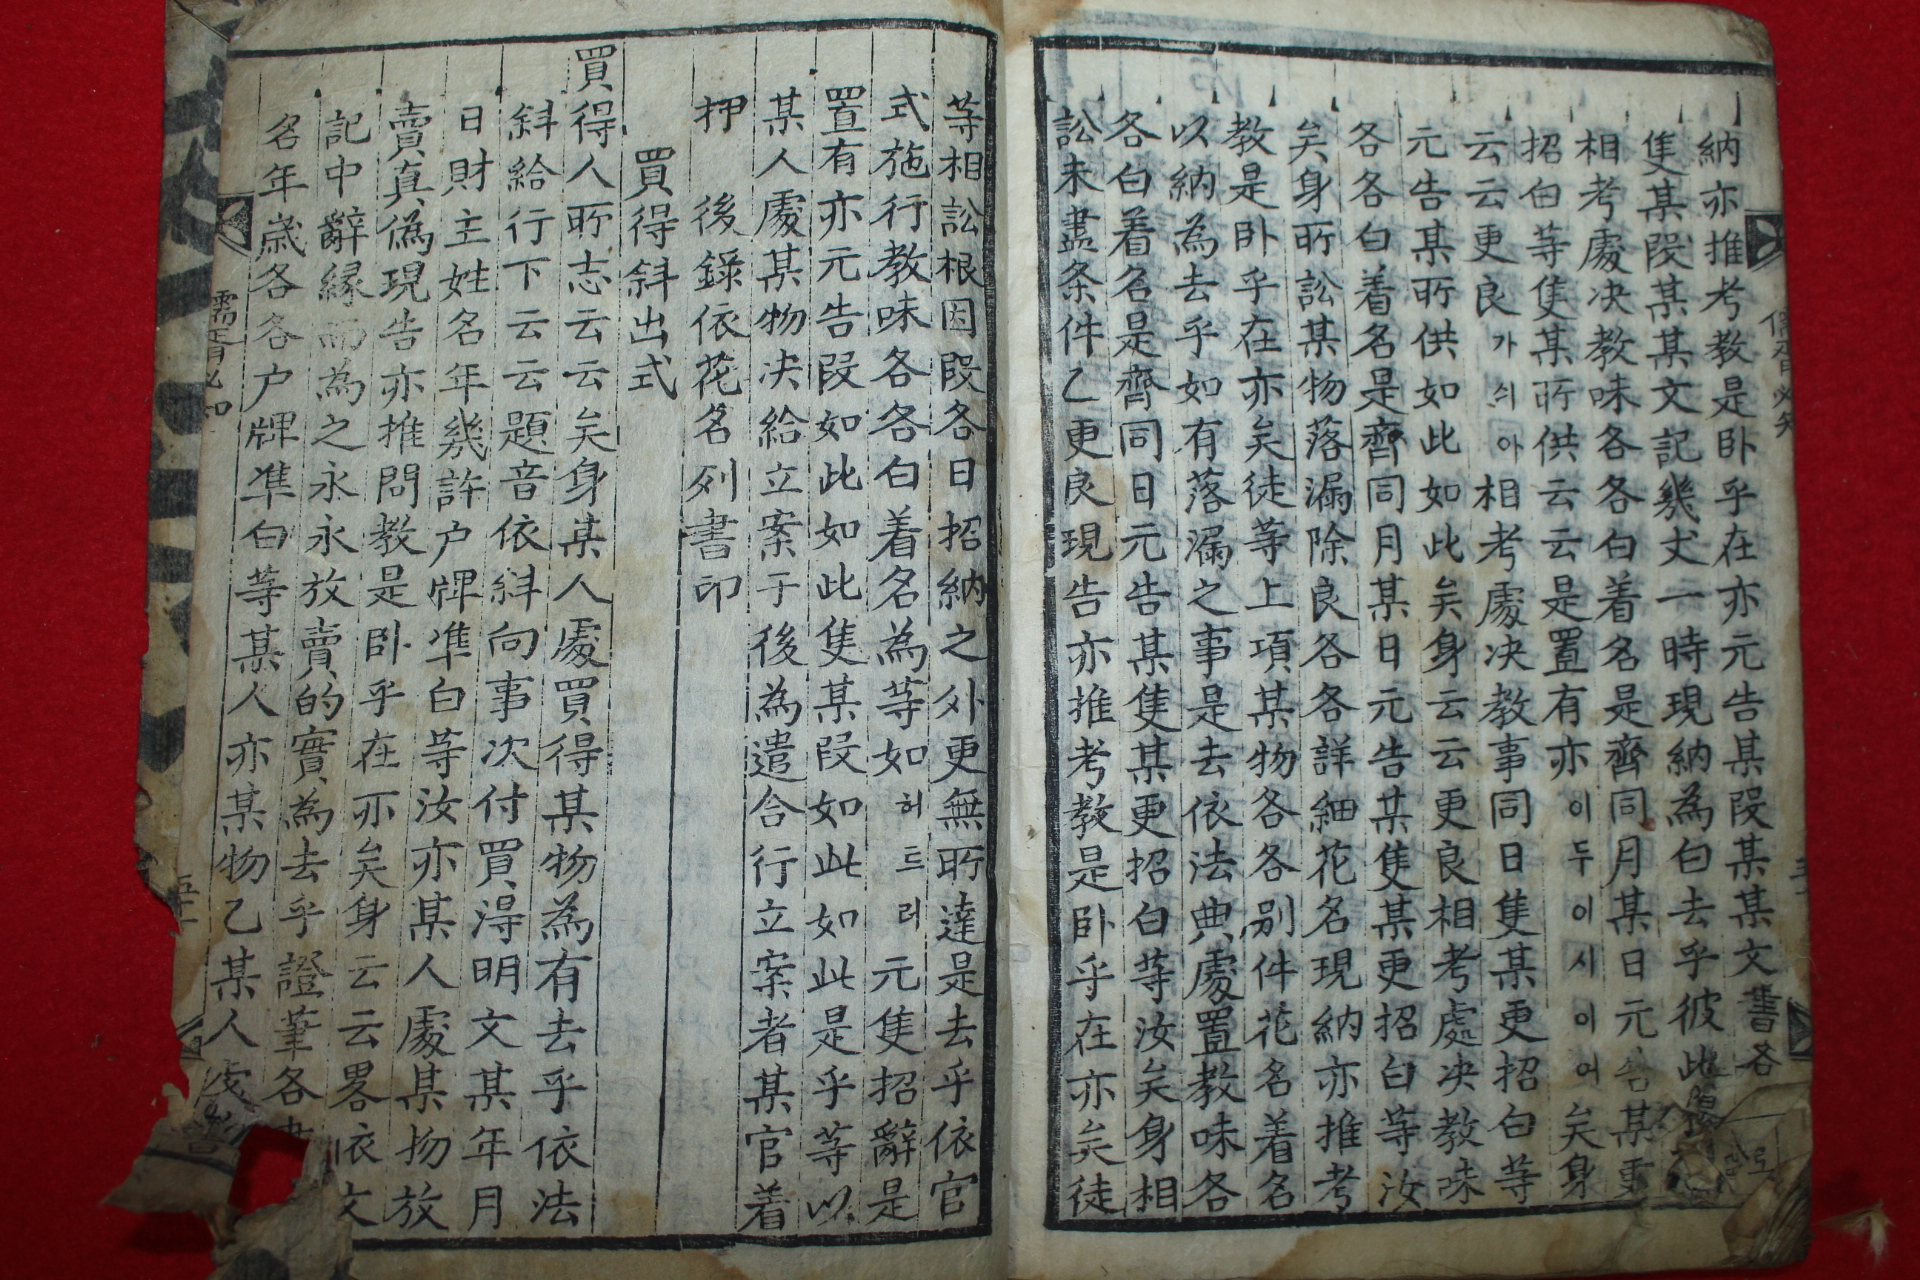 納亦推考教是卧乎在亦元告某段某某文書各
隻某段某某文記幾丈一時現納為白去乎彼此
相考處决教味各各白着名是齊同月某日元告某更
招白等隻某所供云云是置有亦이두이시이어矣身
云云更良가싀아相考處决教事同日隻某更招白等
元告某所供如此如此矣身云云更良相考處决教味
各各白着名是齊同月某日元告某隻某更招白等汝
矣身所訟某物落漏除良各各詳細花名現納亦推考
教是卧乎在亦矣徒等上項某物各各別件花名着名
以納為去乎如有落漏之事是去依法典處置教味各
各白着名是齊同日元告某隻某更招白等汝矣身相
訟未盡条件乙更良現告亦推考教是卧乎在亦矣徒
等相訟根因段各日招納之外更無所達是去乎依官
式施行教味各各白着名為等如허트러元隻招辭是
置有亦元告段如此如此隻某段如此如此是乎等以
某人處某物决給立案于後為遣合行立案者某官着
押 後錄依花名列書印
買得斜出式
買得人所志云云矣身某人處買得某物為有去乎依法
斜給行下云云題音依斜向事次付買淂明文某年月
日財主姓名年幾許户牌凖白等汝亦某人處某物放
賣真偽現告亦推問教是卧乎在亦矣身云云畧依文
記中辭縁而為之永永放賣的實為去乎證筆各
名年歳各各户牌凖白等某人亦某物乙某人處
儒胥必知